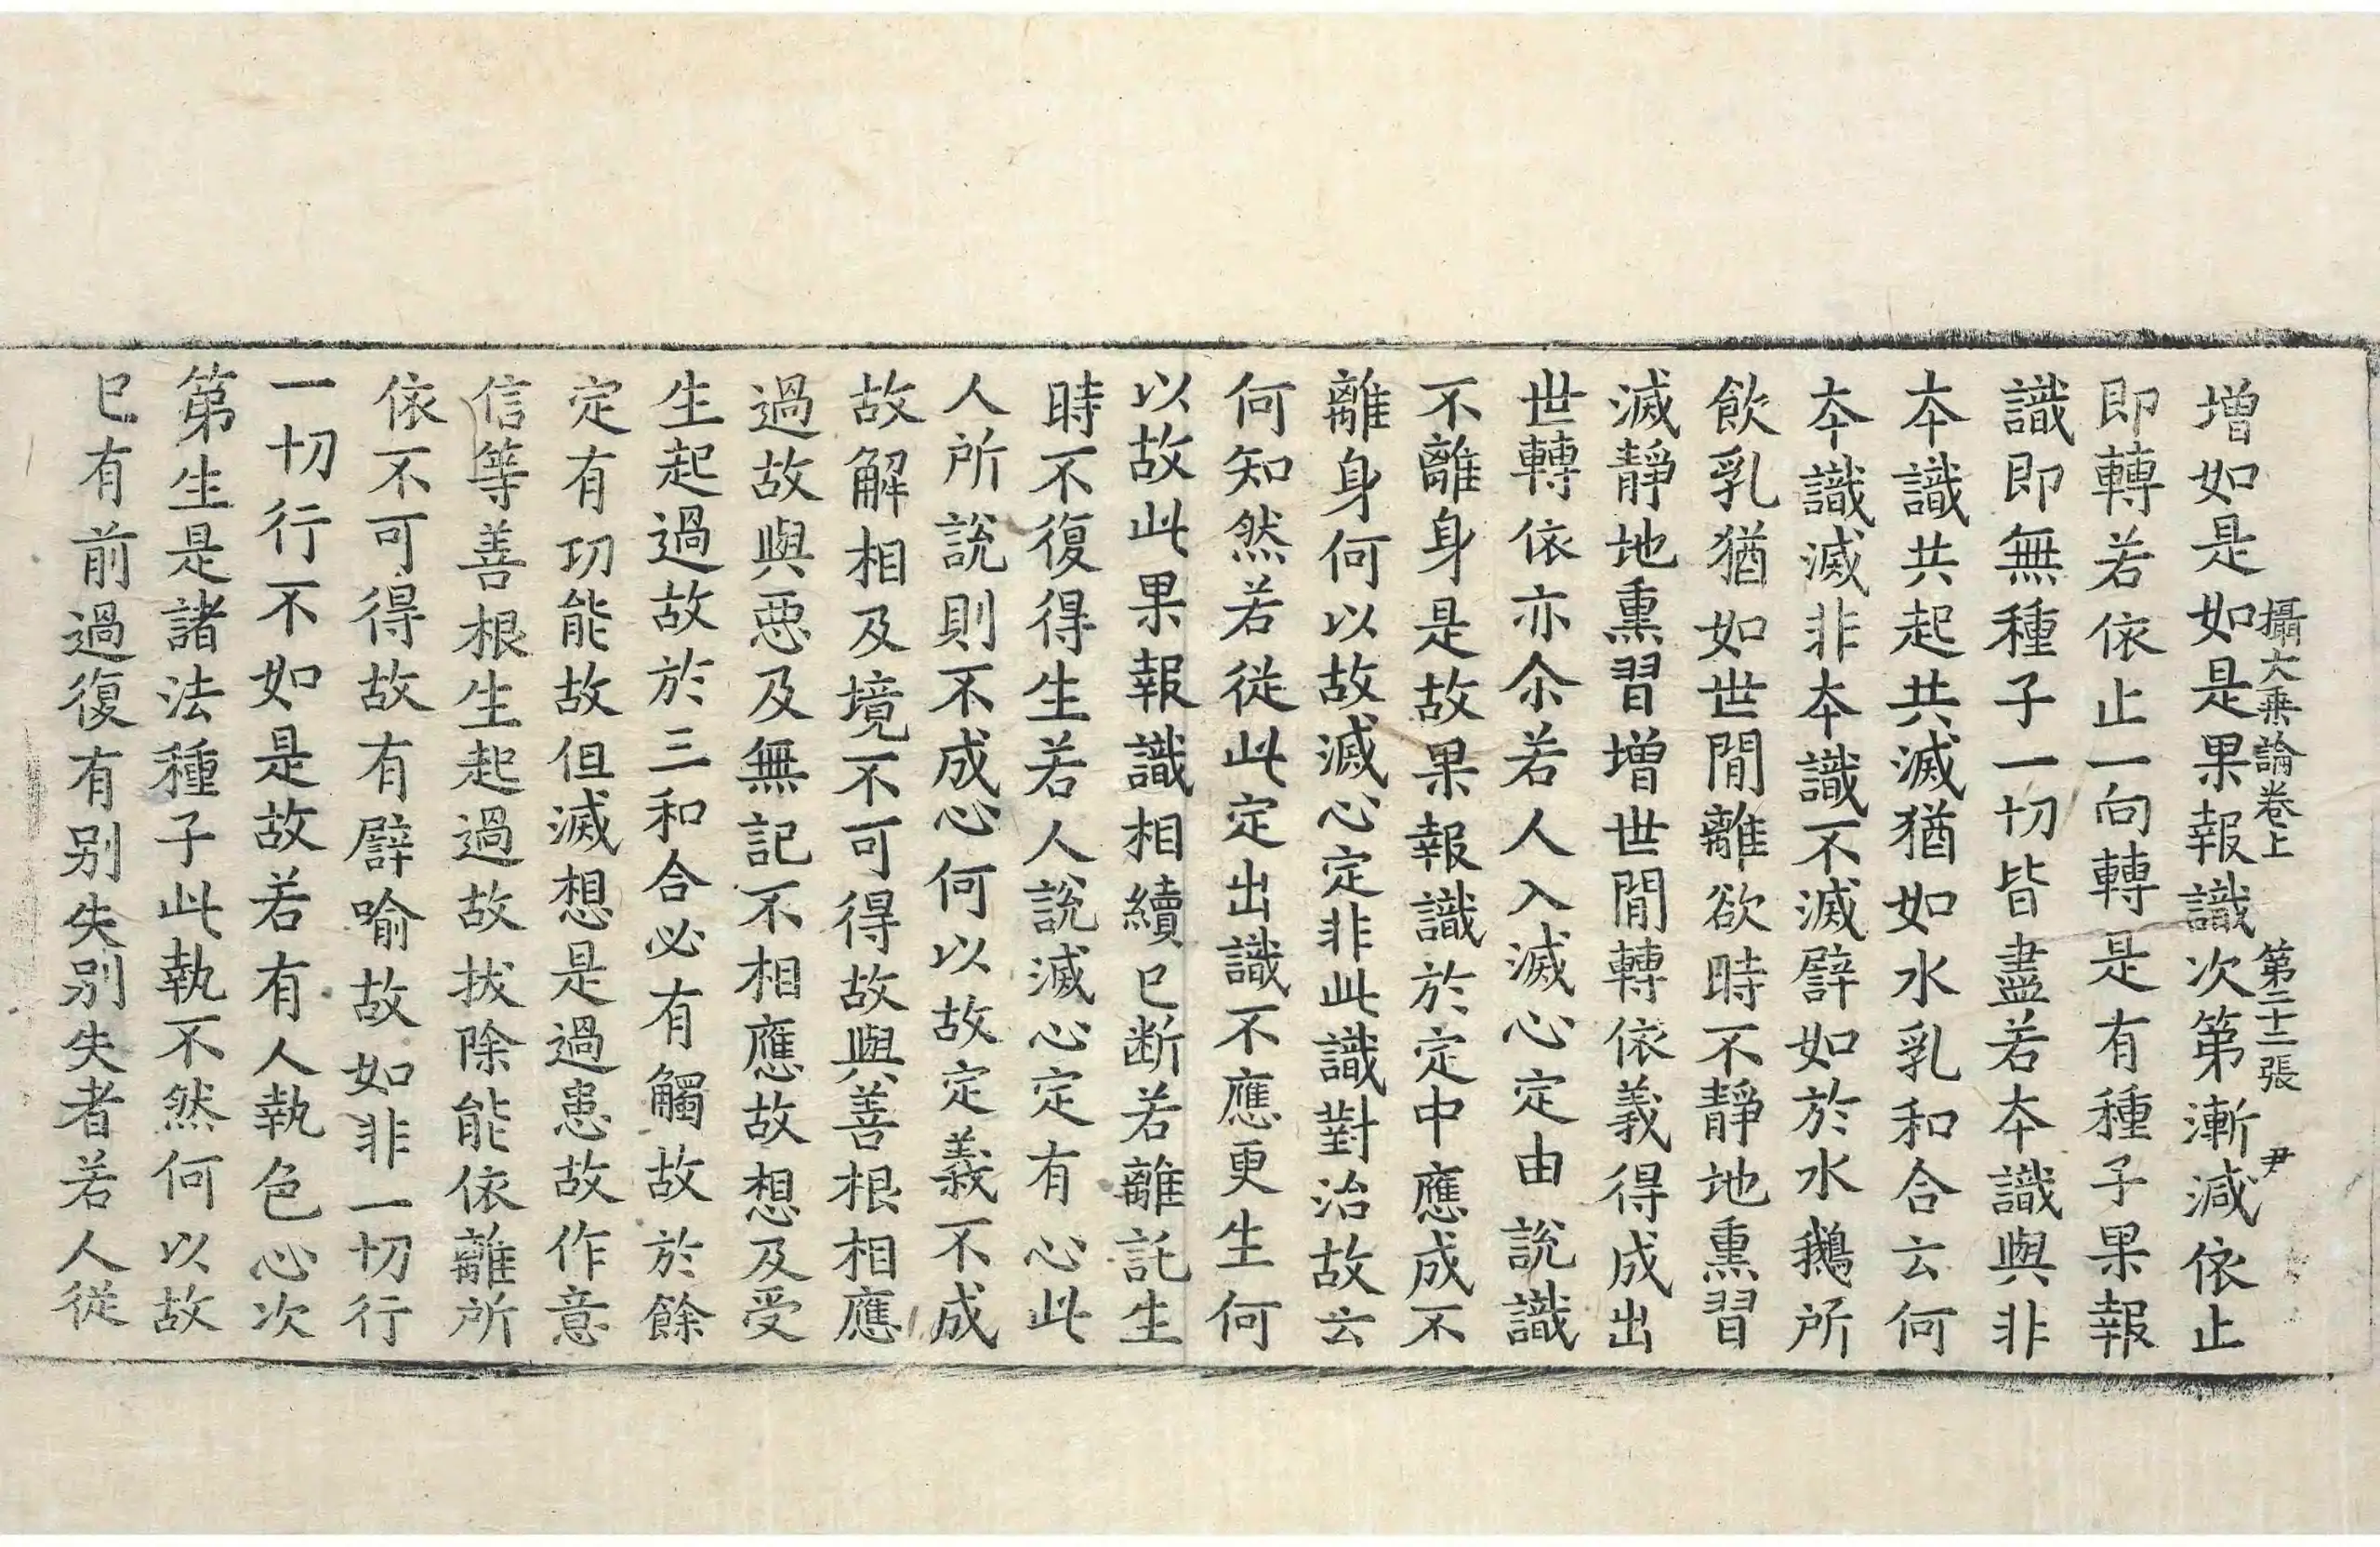 攝大乗論卷上 第二十二張 尹
増如是如是果報識次第漸減依止
即轉若依止一向轉是有種子果報
識即無種子一切皆盡若夲識與非
夲識共起共滅猶如水乳和合云何
夲識滅非夲識不滅譬如於水鵝所
飲乳猶如世閒離欲時不静地熏習
滅静地熏習増世閒轉依義得成出
世轉依亦尒若人入滅心定由說識
不離身是故果報識於定中應成不
離身何以故滅心定非此識對治故云
何知然若從此定出識不應更生何
以故此果報識相續已断若離託生
時不復得生若人說滅心定有心此
人所說則不成心何以故定義不成
故解相及境不可得故與善根相應
過故與悪及無記不相應故想及受
生起過故於三和合必有觸故於餘
定有功能故但滅想是過患故作意
信等善根生起過故拔除能依離所
依不可得故有譬喻故如非一切行
一切行不如是故若有人執色心次
第生是諸法種子此執不然何以故
已有前過復有别失别失者若人從